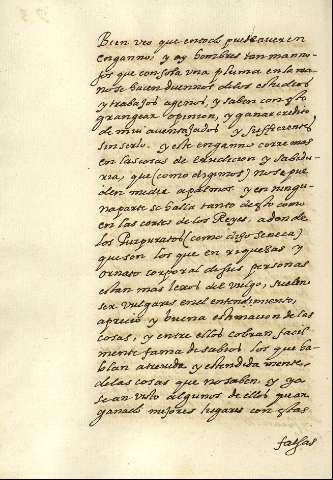 Bien veo que en todo puede aver en
enganno; y ay hombres tan manno-
sos que con sola vna pluma en la ma
no se hacen duennos de los estudios
y trabajos agenos, y saben con esto
grangear opinion, y ganar credito
de mui aventajados y sufficientes
sin serlo. y este enganno corre mas
en las cosas de erudicion y sabidu-
ria, que (como diximos) no se pue
den medir a palmos. y en ningu-
na parte se halla tanto de esto como
en las cortes de los Reyes, a donde
los Purpuratos (como dixo Seneca)
que son los que en riquezas y
ornato corporal de sus personas
estan mas lexos del vulgo, suelen
ser vulgares en el entendimiento,
aprecio y buena estimacion de las
cosas, y entre ellos cobran facil
mente fama de sabios los que ha
blan atrevida y estendida mente
de las cosas que no saben. y ya
se an visto algunos de ellos que an
ganado mejores lugares con estas
falsas